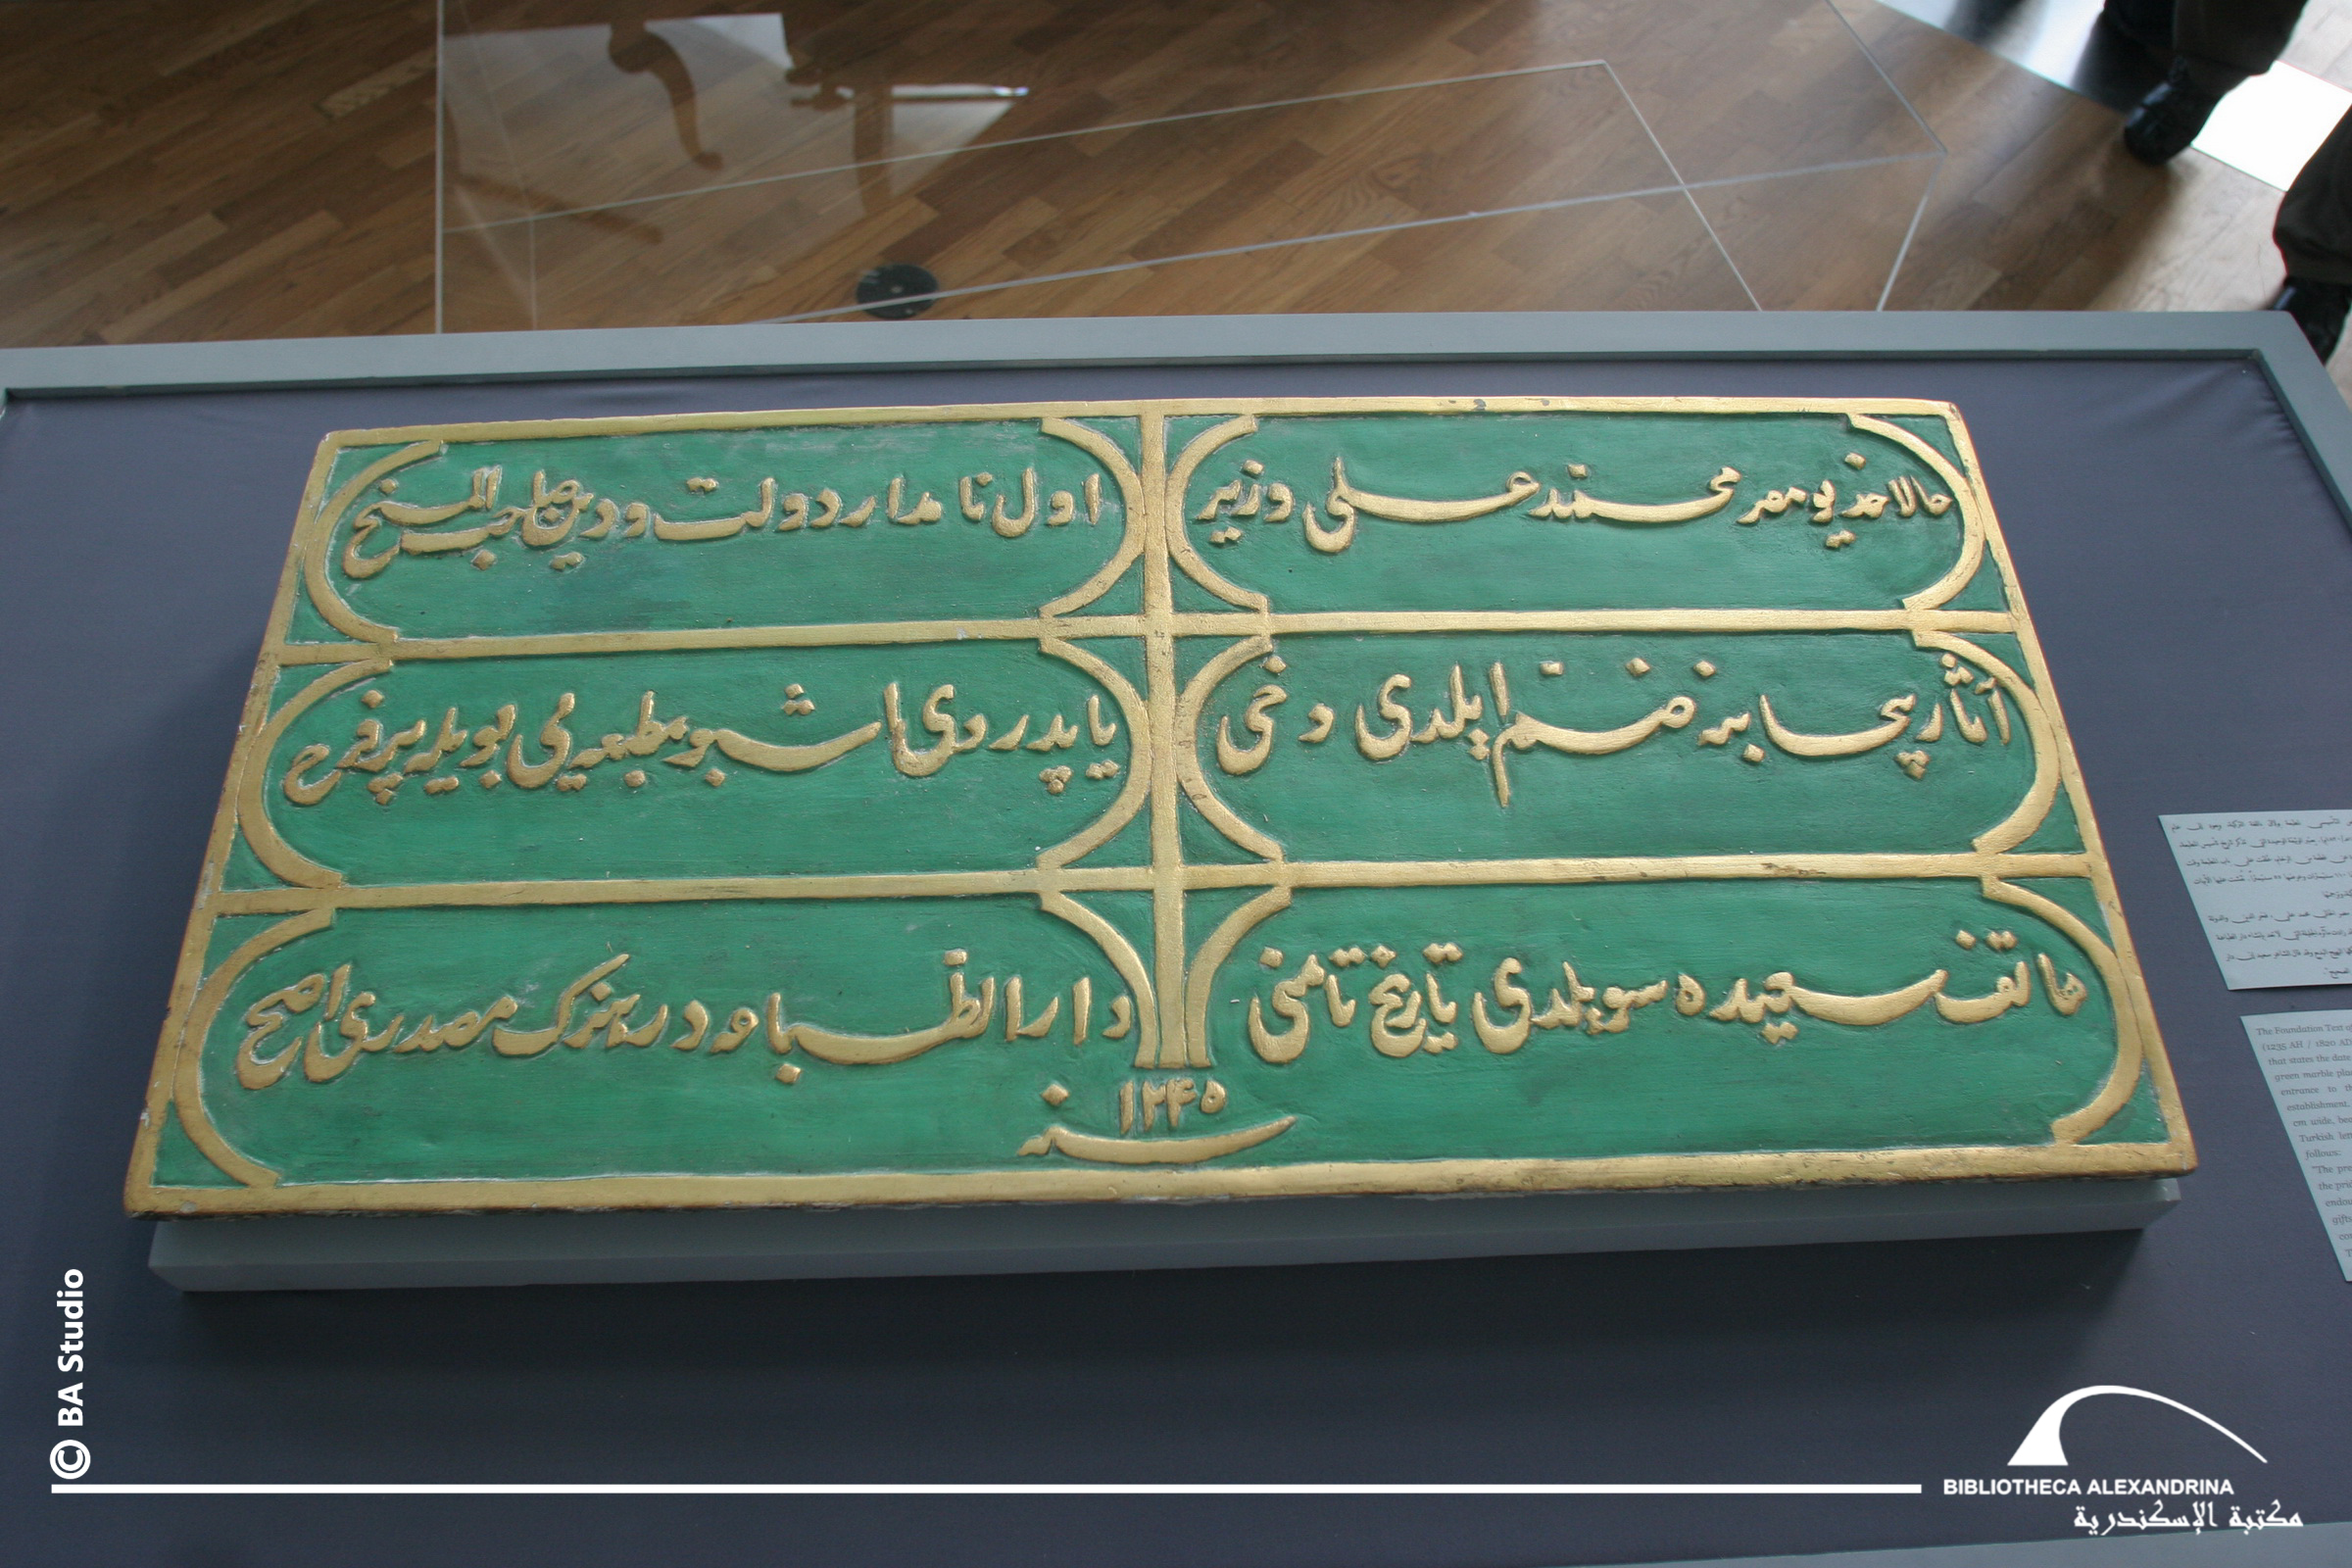 حالا خديو مصر محمد علی وزیر
اول نامدار دولت ودین صاحب المنح
آثار بیحسابنه ضم ایلدی دخی
یاپدردی اشبو مطبعه یی بویله پر فرح
هاتف سعیده سویلدی تاریخ تامنی
دار الطباعه در هنرك مصدری اصح
سنه ١٢٣٥
The Foundation Text of
(1235 AH / 1820 AD
that states the date
green marble pla
entrance to th
establishment.
cm wide, bea
Turkish
follows:
"The pre
the pri
endo
gifts
co
© BA Studio
BIBLIOTHECA ALEXANDRINA
مكتبة الإسكندرية